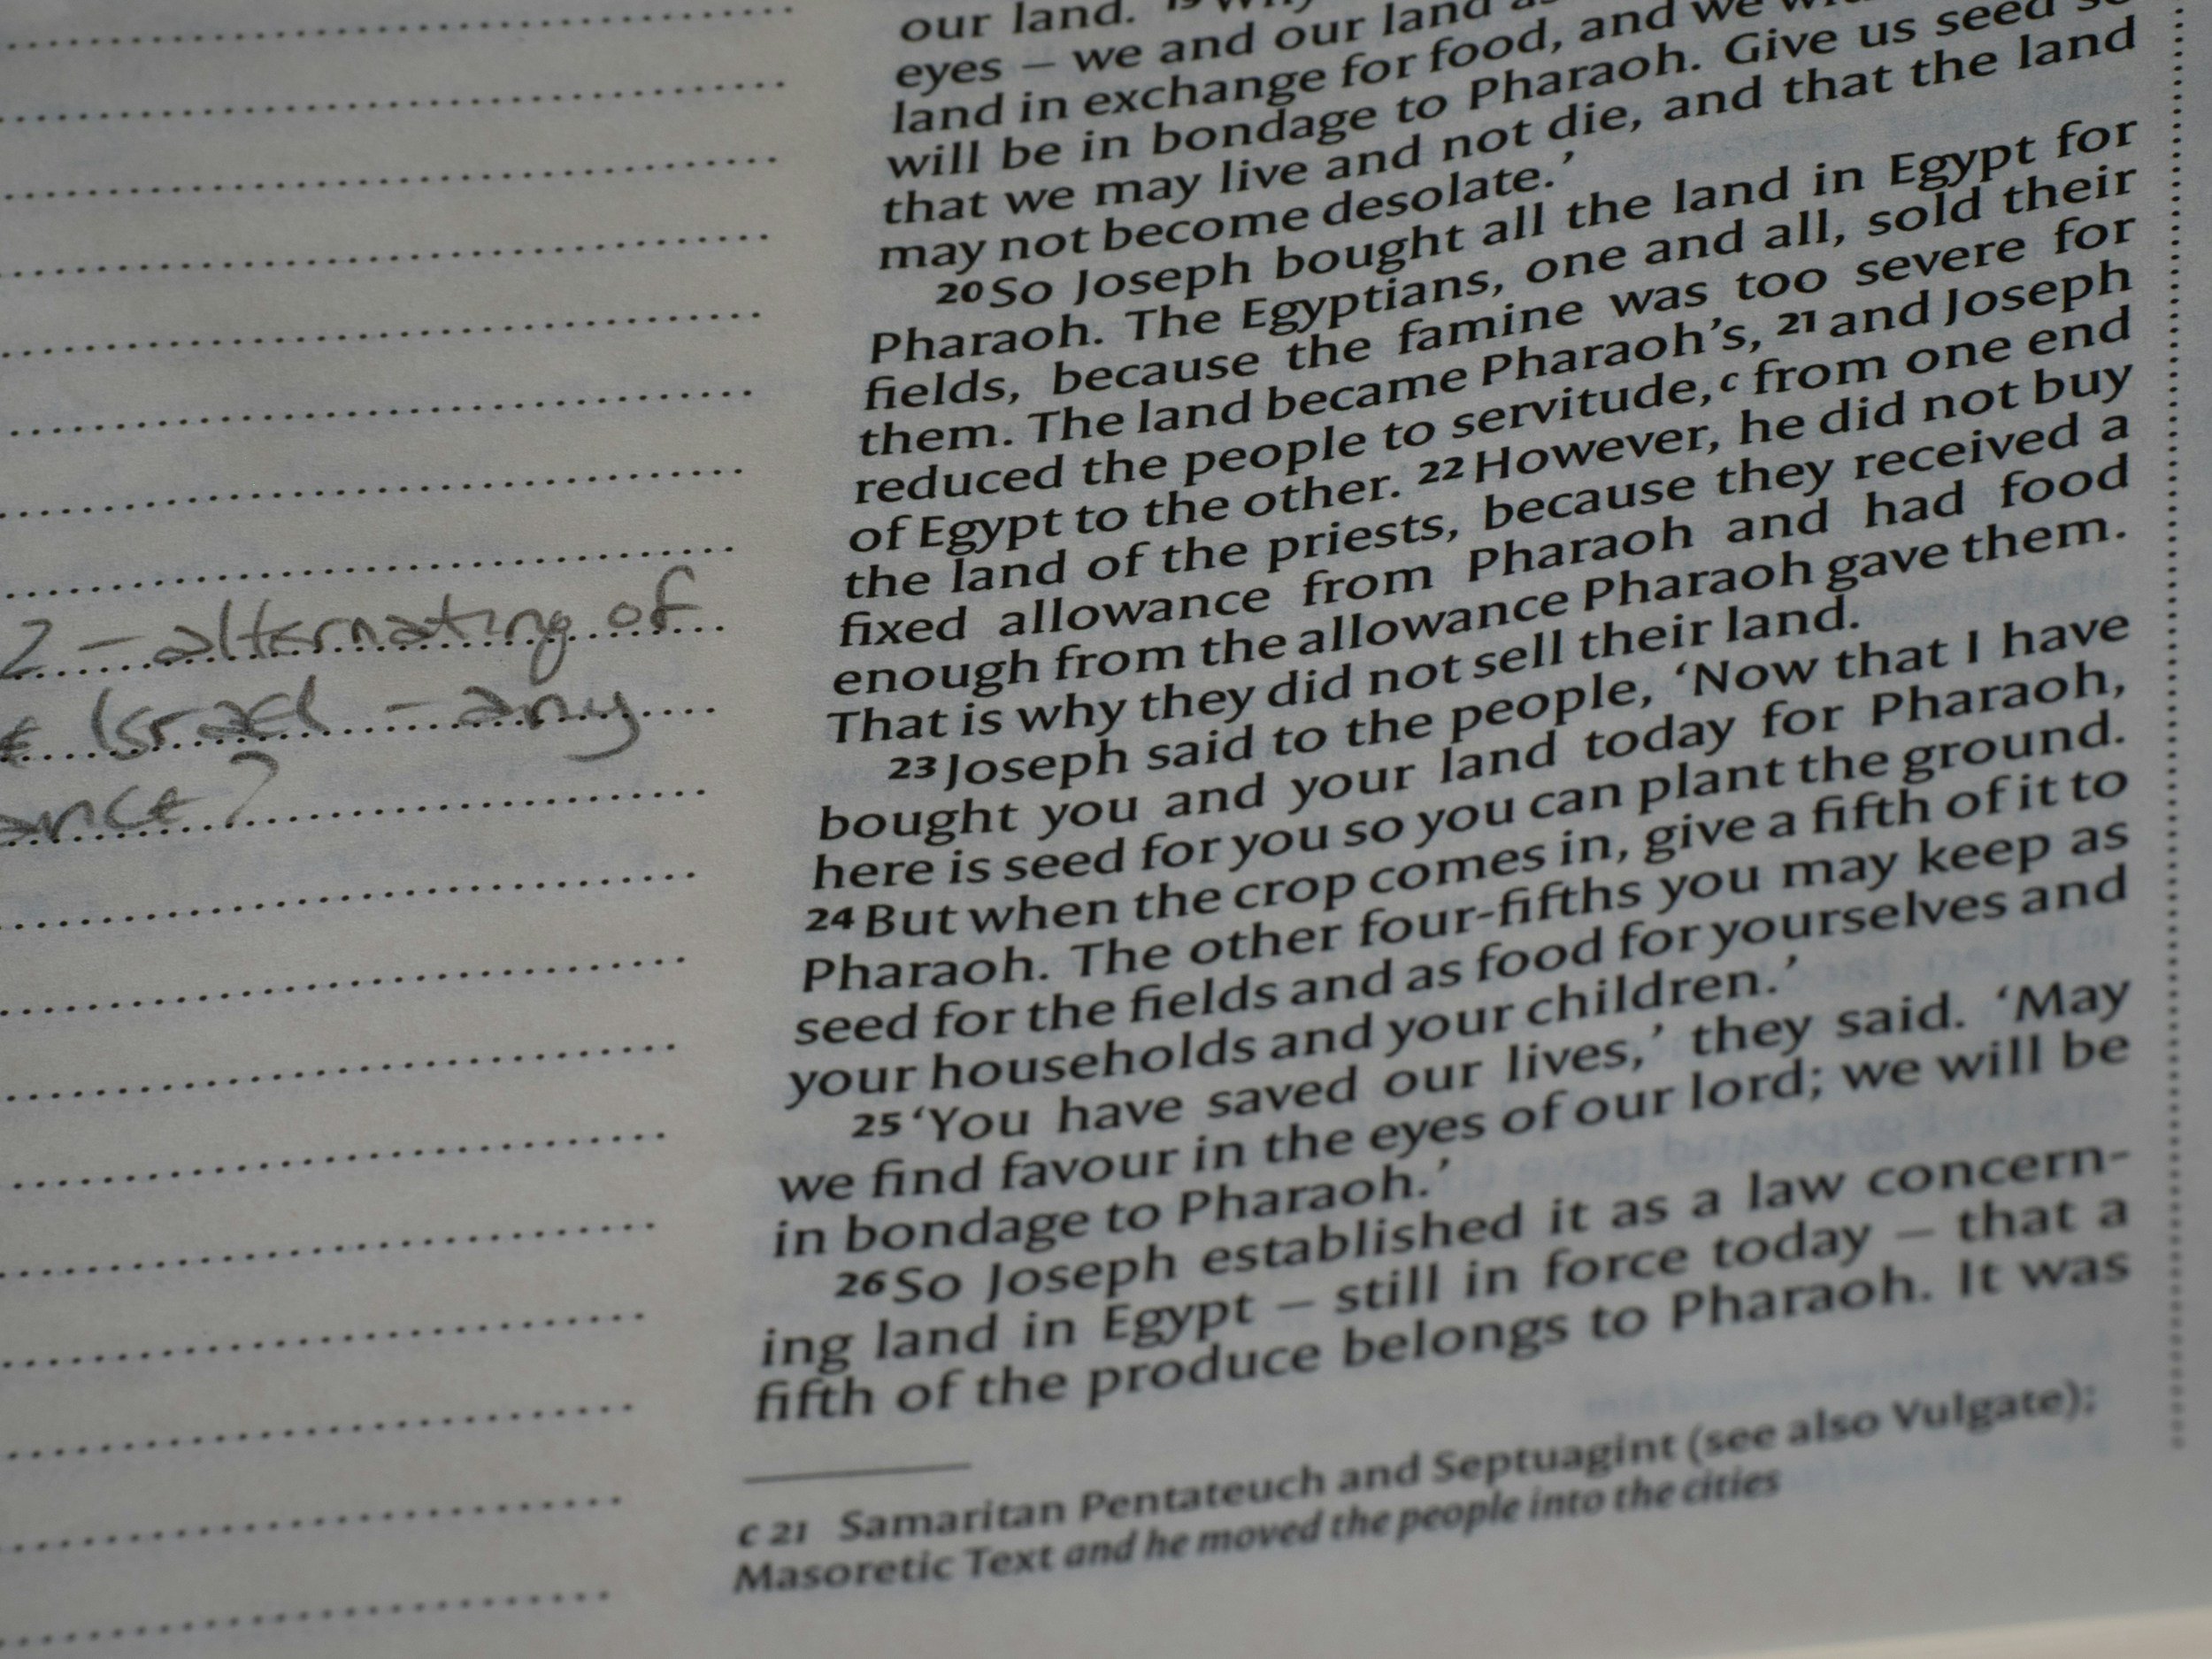 2 – alternating of
Israel – any
?
our land. 19
eyes – we and our land
land in exchange for food, and we
will be in bondage to Pharaoh. Give us seed
that we may live and not die, and that the land
may not become desolate.’
20 So Joseph bought all the land in Egypt for
Pharaoh. The Egyptians, one and all, sold their
fields, because the famine was too severe for
them. The land became Pharaoh’s, 21 and Joseph
reduced the people to servitude,c from one end
of Egypt to the other. 22 However, he did not buy
the land of the priests, because they received a
fixed allowance from Pharaoh and had food
enough from the allowance Pharaoh gave them.
That is why they did not sell their land.
23 Joseph said to the people, ‘Now that I have
bought you and your land today for Pharaoh,
here is seed for you so you can plant the ground.
24 But when the crop comes in, give a fifth of it to
Pharaoh. The other four-fifths you may keep as
seed for the fields and as food for yourselves and
your households and your children.’
25 ‘You have saved our lives,’ they said. ‘May
we find favour in the eyes of our lord; we will be
in bondage to Pharaoh.’
26 So Joseph established it as a law concern-
ing land in Egypt – still in force today – that a
fifth of the produce belongs to Pharaoh. It was
c 21 Samaritan Pentateuch and Septuagint (see also Vulgate);
Masoretic Text and he moved the people into the cities